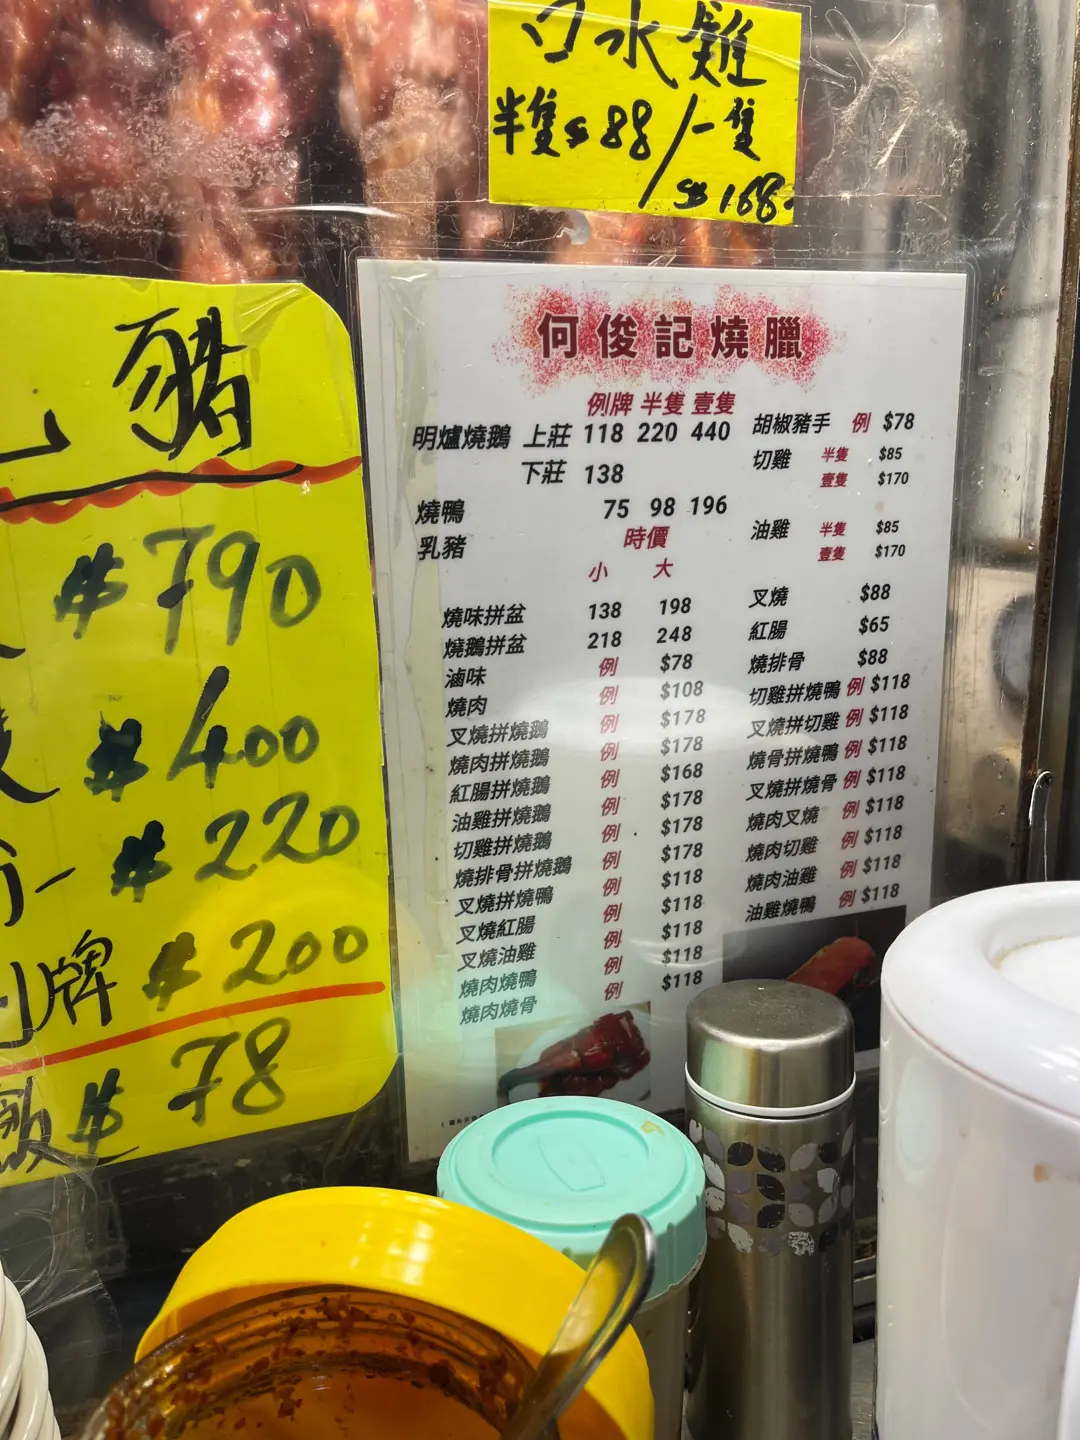 口水雞
半隻$88/一隻
$168-
豬
$790
$400
$220
牌 $200
飯 $78
何俊記燒臘
例牌 半隻 壹隻
明爐燒鵝 上莊 118 220 440
下莊 138
燒鴨 75 98 196
乳豬 時價
小 大
燒味拼盆 138 198
燒鵝拼盆 218 248
滷味 例 $78
燒肉 例 $108
叉燒拼燒鵝 例 $178
燒肉拼燒鵝 例 $178
紅腸拼燒鵝 例 $168
油雞拼燒鵝 例 $178
切雞拼燒鵝 例 $178
燒排骨拼燒鵝 例 $178
叉燒拼燒鴨 例 $118
叉燒紅腸 例 $118
叉燒油雞 例 $118
燒肉燒鴨 例 $118
燒肉燒骨 例 $118
胡椒豬手 例 $78
切雞 半隻 $85
壹隻 $170
油雞 半隻 $85
壹隻 $170
叉燒 $88
紅腸 $65
燒排骨 $88
切雞拼燒鴨 例 $118
叉燒拼切雞 例 $118
燒骨拼燒鴨 例 $118
叉燒拼燒骨 例 $118
燒肉叉燒 例 $118
燒肉切雞 例 $118
燒肉油雞 例 $118
油雞燒鴨 例 $118